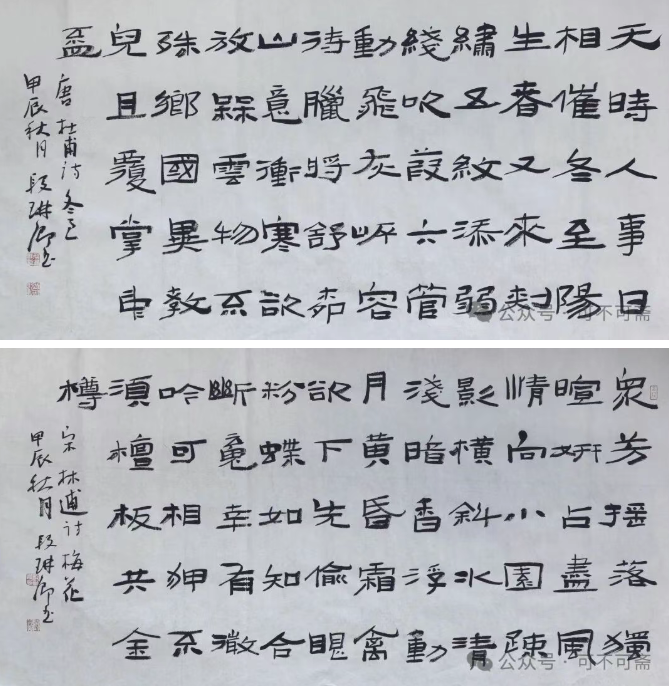 天時人事日
相催冬至陽
生春又來刺
繡五紋添弱
綫吹葭六管
動飛灰岸容
待臘將舒柳
山意衝寒欲
放槑雲物不
殊鄉國異教
兒且覆掌中
盃
唐杜甫诗冬至
甲辰秋月段琳卿书
公众号·可不可斋
眾芳摇落獨
暄妍占盡風
情向小園疎
影横斜水清
淺暗香浮動
月黄昏霜禽
欲下先偷眼
粉蝶如知合
斷魂幸有微
吟可相狎不
須檀板共金
樽
宋林逋诗梅花
甲辰秋月段琳卿书
公众号·可不可斋